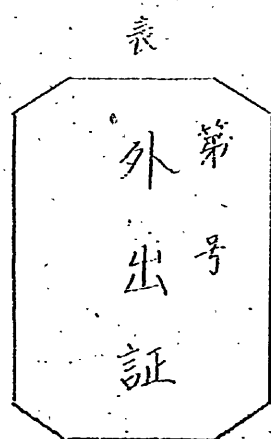 表
第 号
外出証